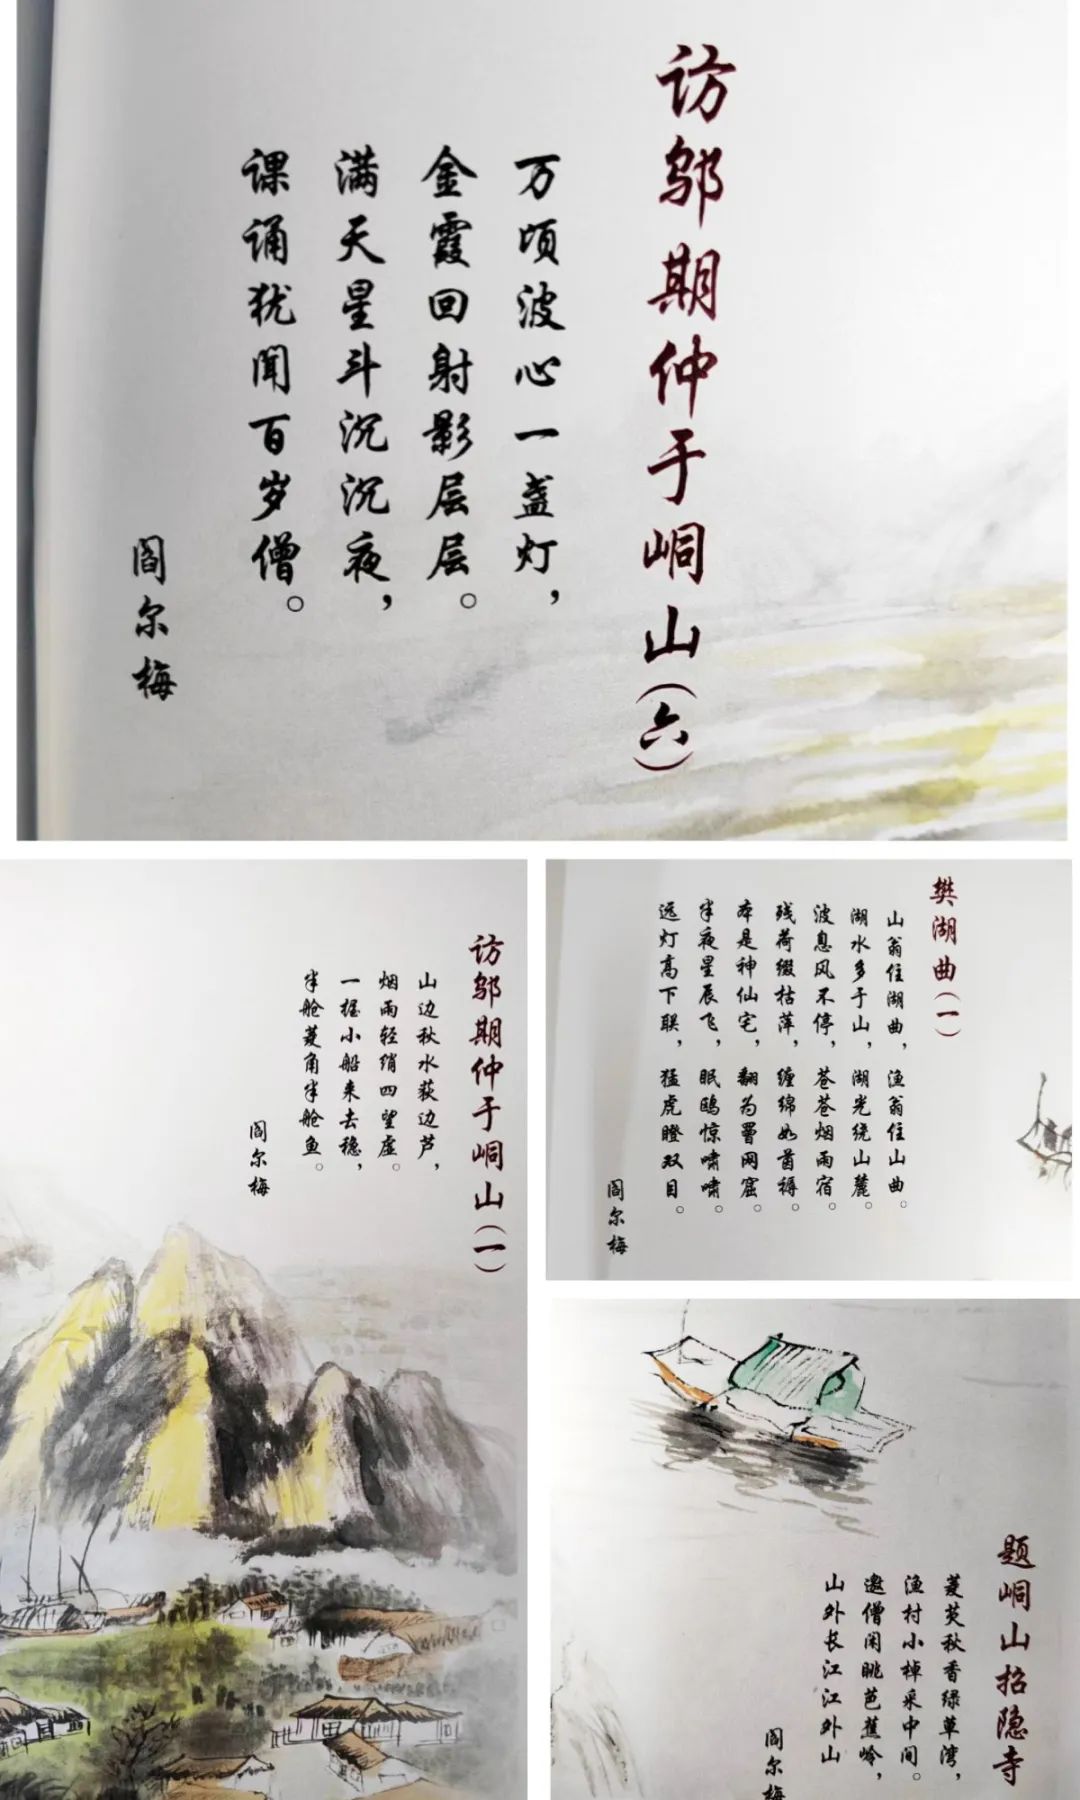 访邬期仲于峒山(六)
万顷波心一盏灯，
金霞回射影层层。
满天星斗沉沉夜，
课诵犹闻百岁僧。
阎尔梅
访邬期仲于峒山(一)
山边秋水荻边芦，
烟雨轻绡四望虚。
一握小船来去稳，
半舱菱角半舱鱼。
阎尔梅
樊湖曲(一)
山翁住湖曲，渔翁住山曲。
湖水多于山，湖光绕山麓。
波息风不停，苍苍烟雨宿。
残荷缀枯萍，缠绵如茵褥。
本是神仙宅，翻为罾网窟。
半夜星辰飞，眠鸥惊啸啸。
远灯高下联，猛虎瞪双目。
阎尔梅
题峒山招隐寺
菱芡秋香绿草湾，
渔村小棹采中间。
邀僧闲眺芭蕉岭，
山外长江江外山
阎尔梅